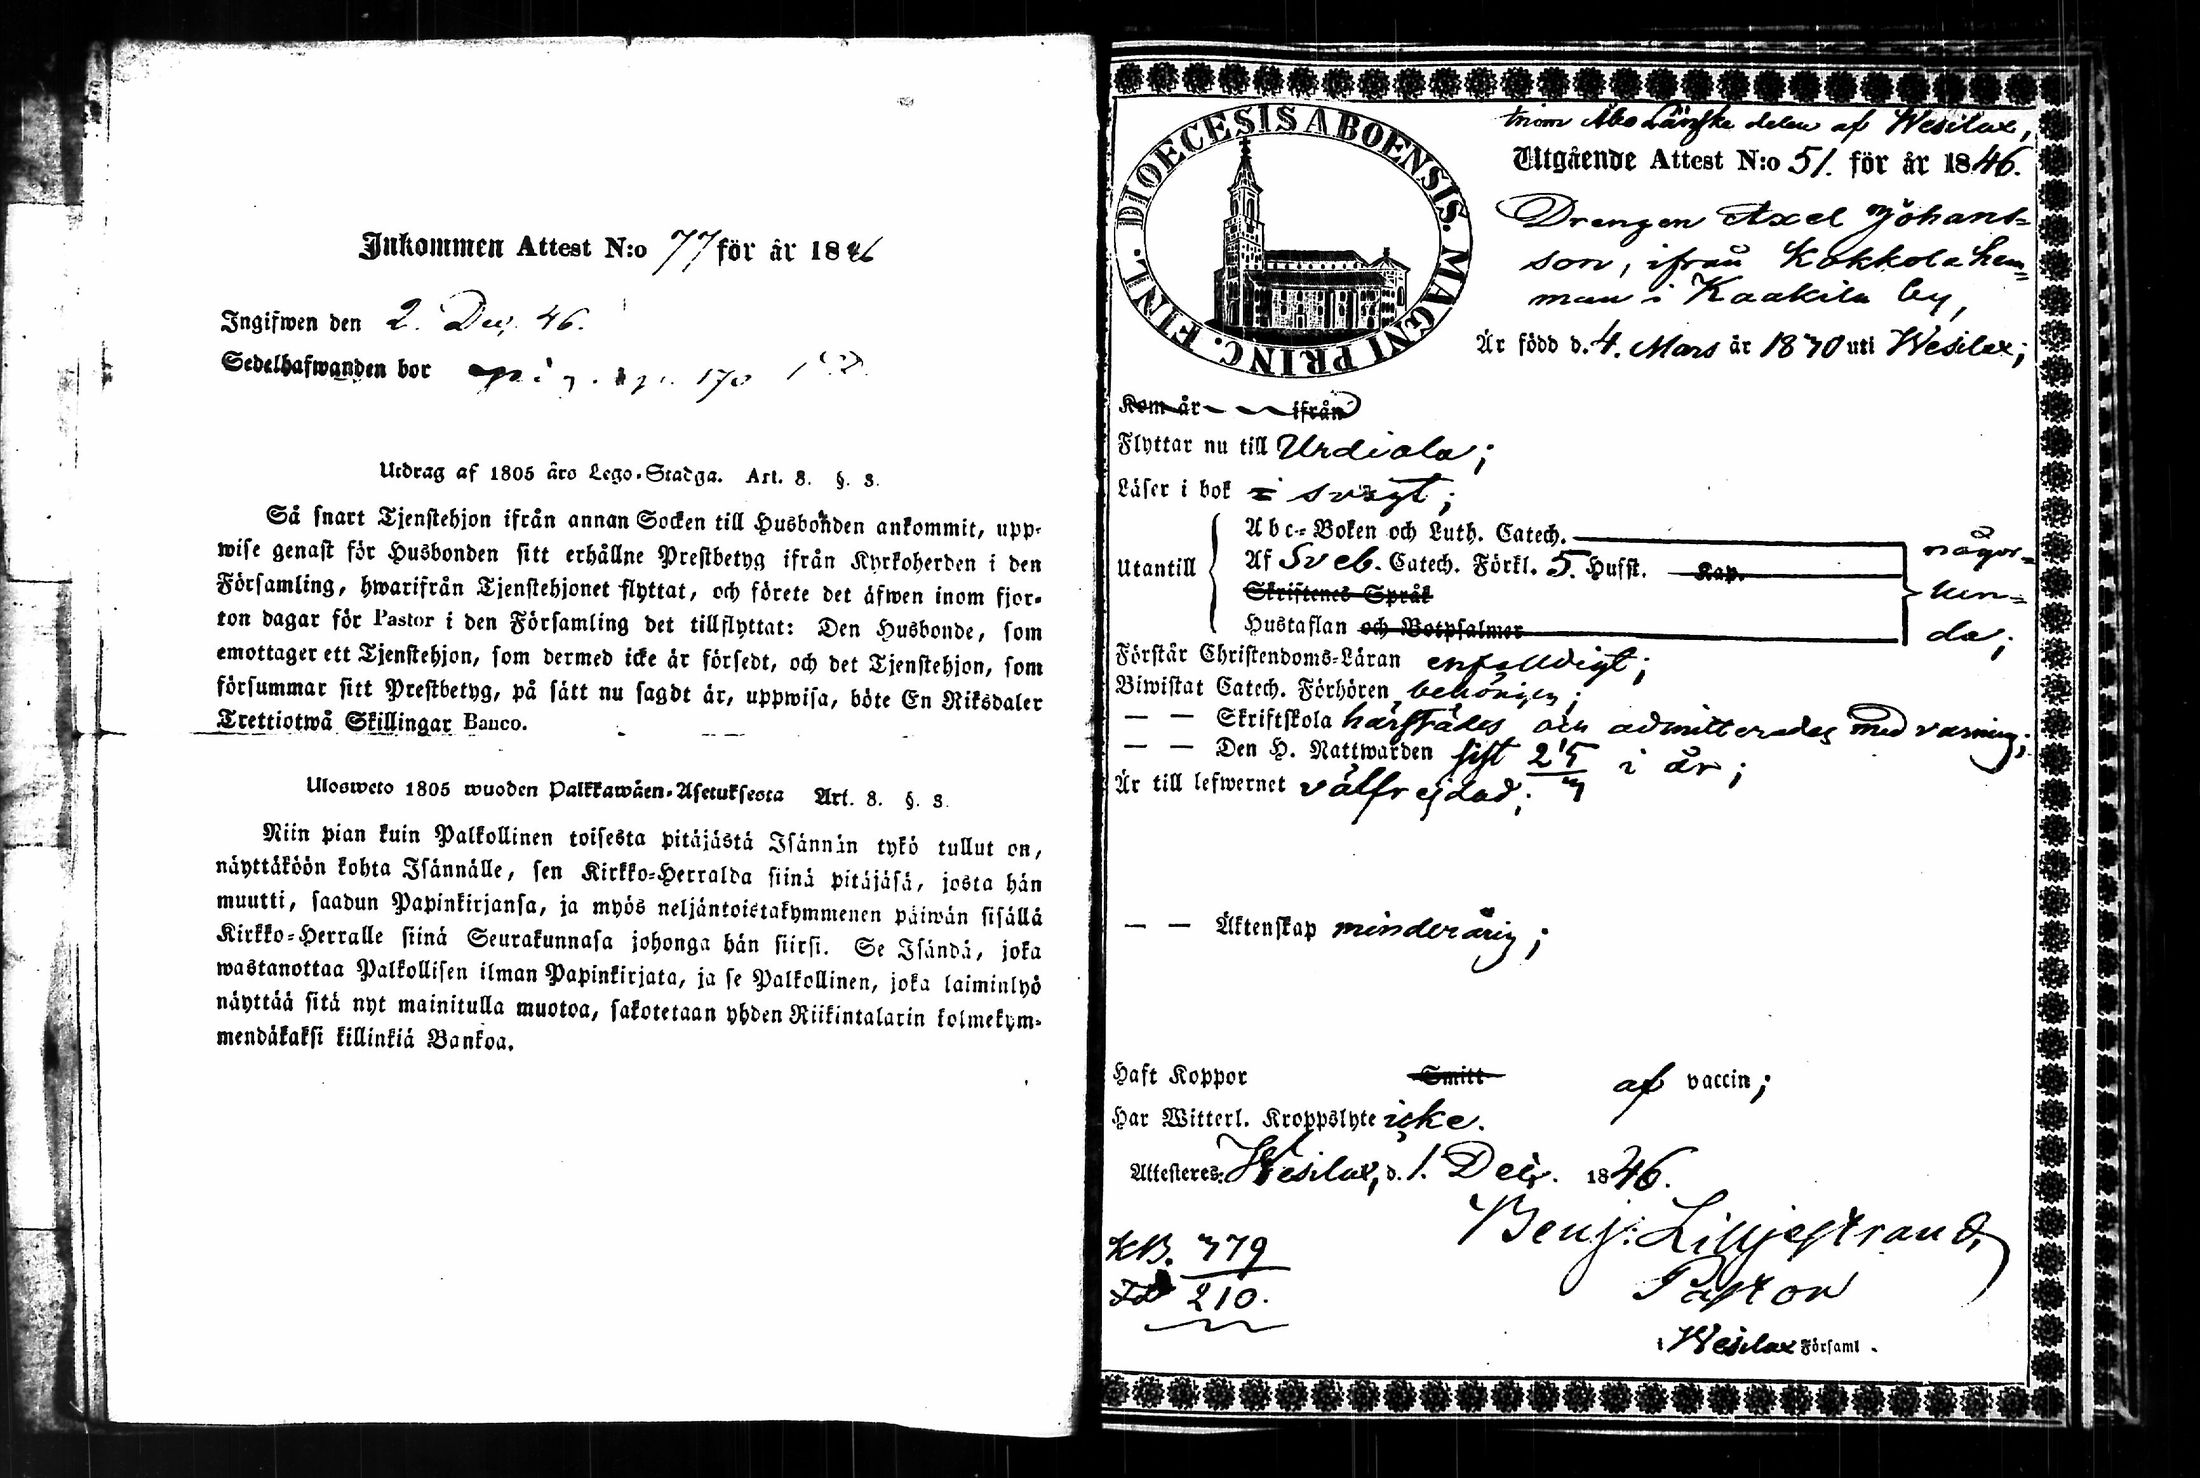 Inkommen Attest N:o 77 för år 1846
Ingifwen den 2. Dec. 46.
Sedelhafwanden bor
Utdrag af 1805 års Lego-Stadga. Art. 8. §. 3.
Så snart Tjenstehjon ifrån annan Socken till Husbonden ankommit, upp-
wise genast för Husbonden sitt erhållne Prestbetyg ifrån Kyrkoherden i den
Församling, hwarifrån Tjenstehjonet flyttat, och förete det äfwen inom fjor-
ton dagar för Pastor i den Församling det tillflyttat: Den Husbonde, som
emottager ett Tjenstehjon, som dermed icke är försedt, och det Tjenstehjon, som
försummar sitt Prestbetyg, på sätt nu sagdt är, uppwisa, böte En Riksdaler
Trettiotwå Skillingar Banco.
Ulosweto 1805 wuoden Palkkawäen-Asetuksesta Art. 8. §. 3.
Niin pian kuin Palkollinen toisesta pitäjästä Isännän tykö tullut on,
näyttäköön kohta Isännälle, sen Kirkko-Herralda siinä pitäjäsä, josta hän
muutti, saadun Papinkirjansa, ja myös neljäntoistakymmenen päiwän sisällä
Kirkko-Herralle siinä Seurakunnasa johonga hän siirsi. Se Isändä, joka
wastanottaa Palkollisen ilman Papinkirjata, ja se Palkollinen, joka laiminlyö
näyttää sitä nyt mainitulla muotoa, sakotetaan yhden Riikintalarin kolmekym-
mendäkaksi killinkiä Bankoa.
DIOECESIS ABOENSIS. MAGNI PRINC. FINL.
inom Åbo Länske delen af Wesilax,
Utgående Attest N:o 51. för år 1846.
Drengen Axel Johans-
son, ifrån Kokkola hem-
man i Kaakila by,
Är född d. 4. Mars år 1870 uti Wesilax;
Kom år ifrån
Flyttar nu till Urdiala;
Läser i bok i svagt;
Utantill
Abc-Boken och Luth. Catech.
Af Sveb. Catech. Förkl. 5. Hufst. Kap.
Skriftenes Språk
Hustaflan och Botpsalmer
någor-
lun-
da;
Förstår Christendoms-Läran enfalldigt;
Biwistat Catech. Förhören behörigen;
— — Skriftskola härstädes och admitterades med varning;
— — Den H. Nattwarden sist 25/7 i år;
Är till lefwernet välfrejdad;
— — Äktenskap minderårig;
Haft Koppor Smitt af vaccin;
Har Witterl. Kroppslyte icke.
Attesteres: Wesilax, d. 1. Dec. 1846.
Benj: Lilljestrand,
Pastor
i Wesilax Församl.
KB. 779
210.